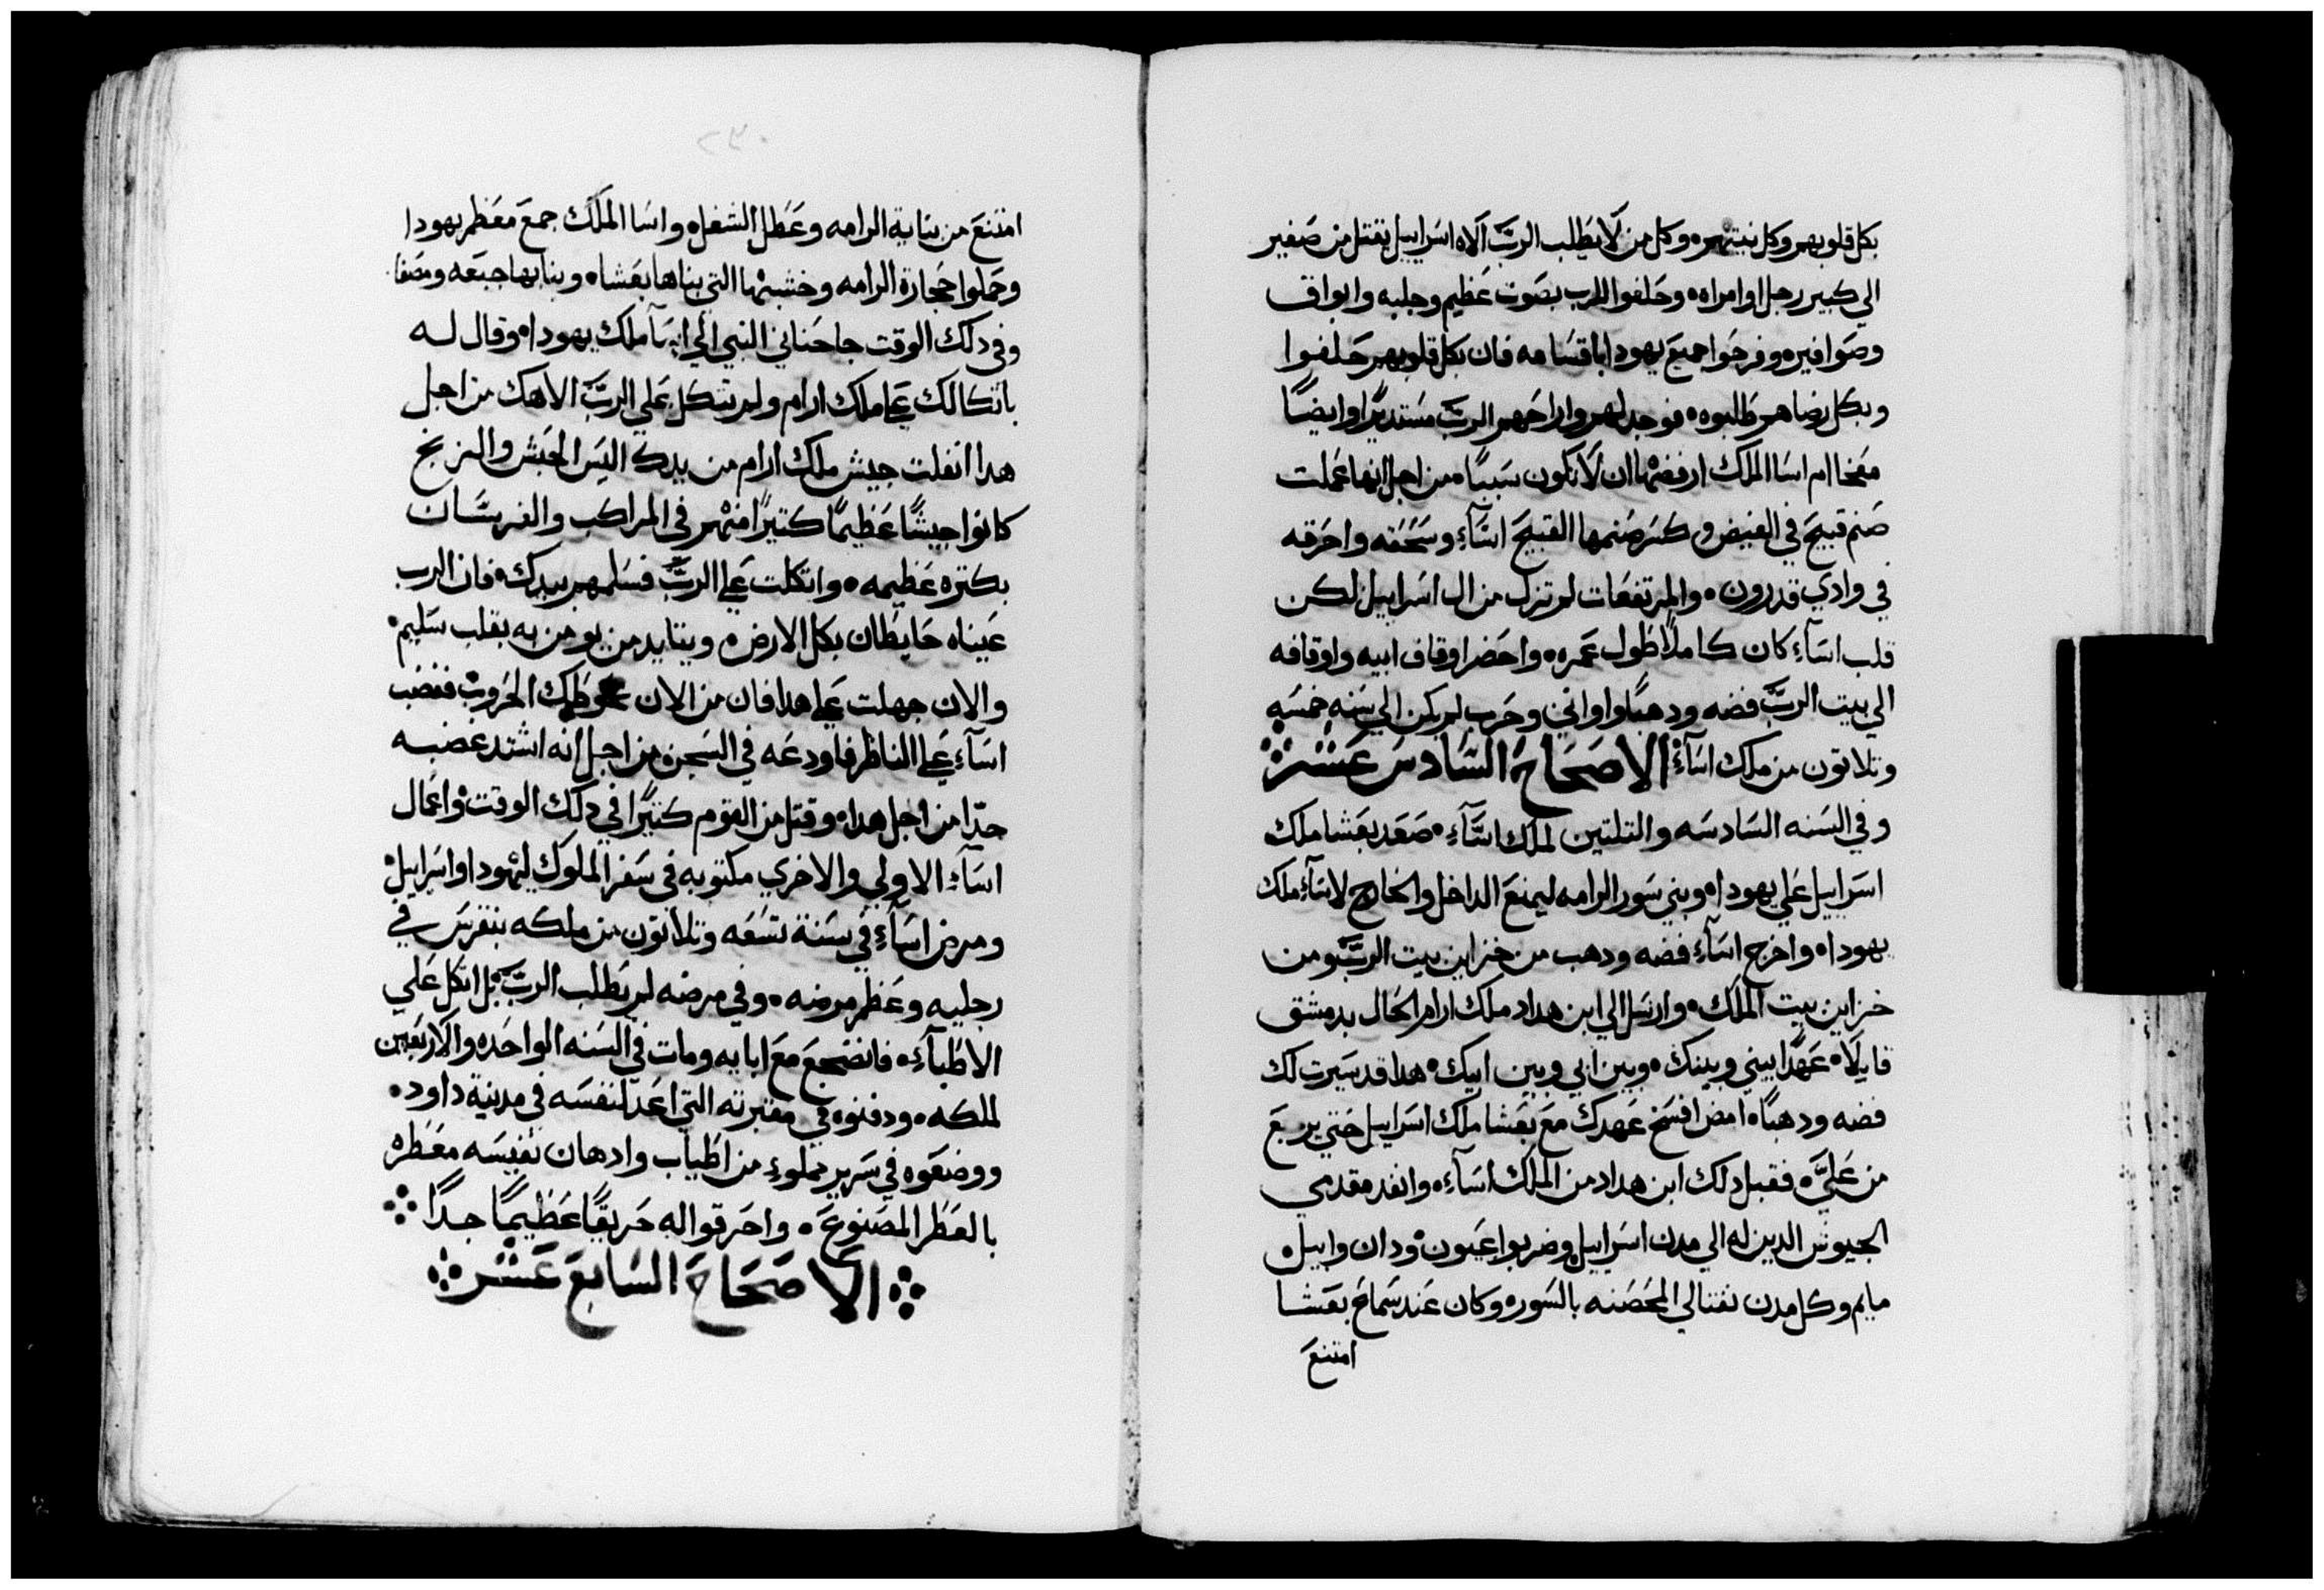 بكل قلوبهم وكل نيتهم وكل من لا يطلب الرب الاه اسراييل يقتل من صغير
الي كبير رجل او امراه وحلفوا للرب بصوت عظيم وجلبه وابواق
وصوافير وفرحوا جميع يهودا باقسامه فان بكل قلوبهم حلفوا
وبكل رضاهم طلبوه فوجد لهم واراحهم الرب مستديرا وايضًا
معخا ام اسا الملك ارفضها ان لا تكون سببًا من اجل انها عملت
صنم قبيح في الغيض وكسر صنمها القبيح اسآء وسحقه واحرقه
في وادي قدرون والمرتفعات لم تزل من ال اسراييل لكن
قلب اسآء كان كاملًا طول عمره واحضر اوقاف ابيه واوقافه
الي بيت الرب فضه ودهبًا واواني وحرب لم يكن الي سنه خمسه
وتلاتون من ملك اسآء الاصحاح السادس عشر
وفي السنه السادسه والتلتين لملك اسآء صعد بعشا ملك
اسراييل علي يهودا وبني سور الرامه ليمنع الداخل والخارج لاسآء ملك
يهودا واخرج اسآء فضه ودهب من خزاين بيت الرب ومن
خزاين بيت الملك وارسل الي ابن هداد ملك ارام الحال بدمشق
قايلًا عهدًا بيني وبينك وبين ابي وبين ابيك هدا قد سيرت لك
فضه ودهبًا امض افسخ عهدك مع بعشا ملك اسراييل حتي يرجع
من عليَّ فقبل دلك ابن هداد من الملك اسآء وانفد مقدمي
الجيوش الدين له الي مدن اسراييل وضربوا عيون ودان وابيل
مايم وكل مدن نفتالي المحصنه بالسور وكان عند سماع بعشا
امتنع
٢٣٠
امتنع من بناية الرامه وعطل الشغل واسا الملك جمع معظم يهودا
وحملوا حجارة الرامه وخشبتها التي بناها بعشا وبنا بها جبعه ومصفا
وفي دلك الوقت جا حناني النبي الي اسآ ملك يهودا وقال له
باتكالك علي ملك ارام ولم تتكل علي الرب الاهك من اجل
هدا انفلت جيش ملك ارام من يدك اليس الحبش والزنج
كانوا جيشًا عظيمًا كتيرًا منهم في المراكب والفرسان
بكتره عظيمه واتكلت علي الرب فسلمهم بيدك فان الرب
عيناه حايطان بكل الارض ويتايد من يومن به بقلب سليم
والان جهلت علي هدا فان من الان تحوطك الحروب فغضب
اسآء علي الناظر فاودعه في السجن من اجل انه اشتد غضبه
جدًا من اجل هدا وقتل من القوم كتيرًا في دلك الوقت واعمال
اسآء الاولي والاخري مكتوبه في سفر الملوك ليهودا واسراييل
ومرض اسآء في سنة تسعه وتلاتون من ملكه بنقرس في
رجليه وعظم مرضه وفي مرضه لم يطلب الرب بل اتكل علي
الاطبآء فانضجع مع ابايه ومات في السنه الواحده والاربعين
لملكه ودفنوه في مقبرته التي اعد لنفسه في مدينة داود
ووضعوه في سرير مملوء من اطياب وادهان نفيسه معطره
بالعطر المصنوع واحرقوا له حريقًا عظيمًا جدًا
الاصحاح السابع عشر